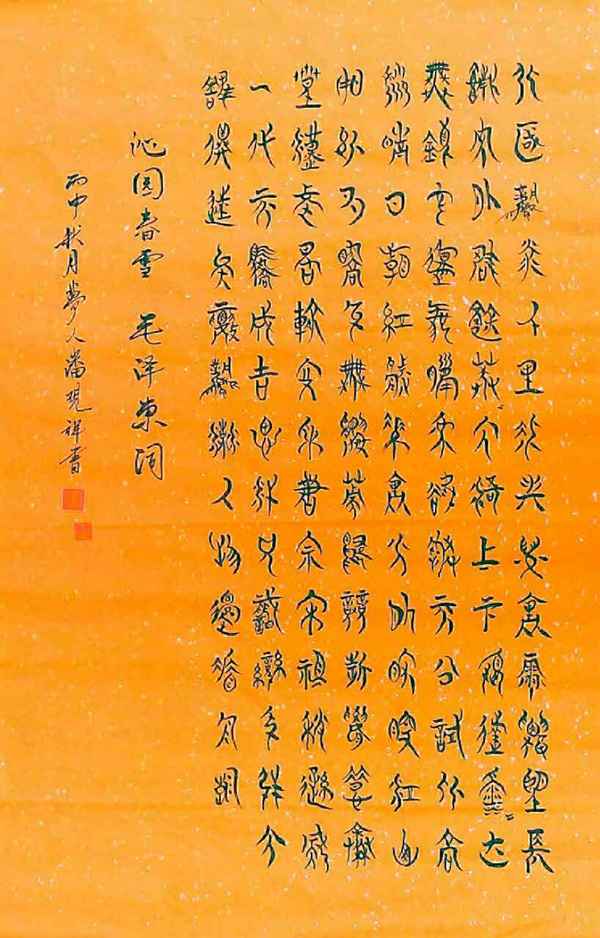 北國風光千里冰封萬里雪飄望長
城內外惟餘莽莽大河上下頓失滔滔山
舞銀蛇原馳蠟象欲與天公試比高
須晴日看紅裝素裹分外妖嬈江山
如此多嬌引無數英雄競折腰惜秦
皇漢武略輸文采唐宗宋祖稍遜風騷
一代天驕成吉思汗只識彎弓射大
雕俱往矣數風流人物還看今朝
沁园春雪 毛泽东词
丙申秋月梦人潘现祥书